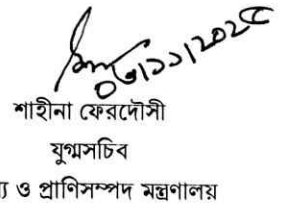 ০৬/১১/২০২৫
শাহীনা ফেরদৌসী
যুগ্মসচিব
ও প্রাণিসম্পদ মন্ত্রণালয়